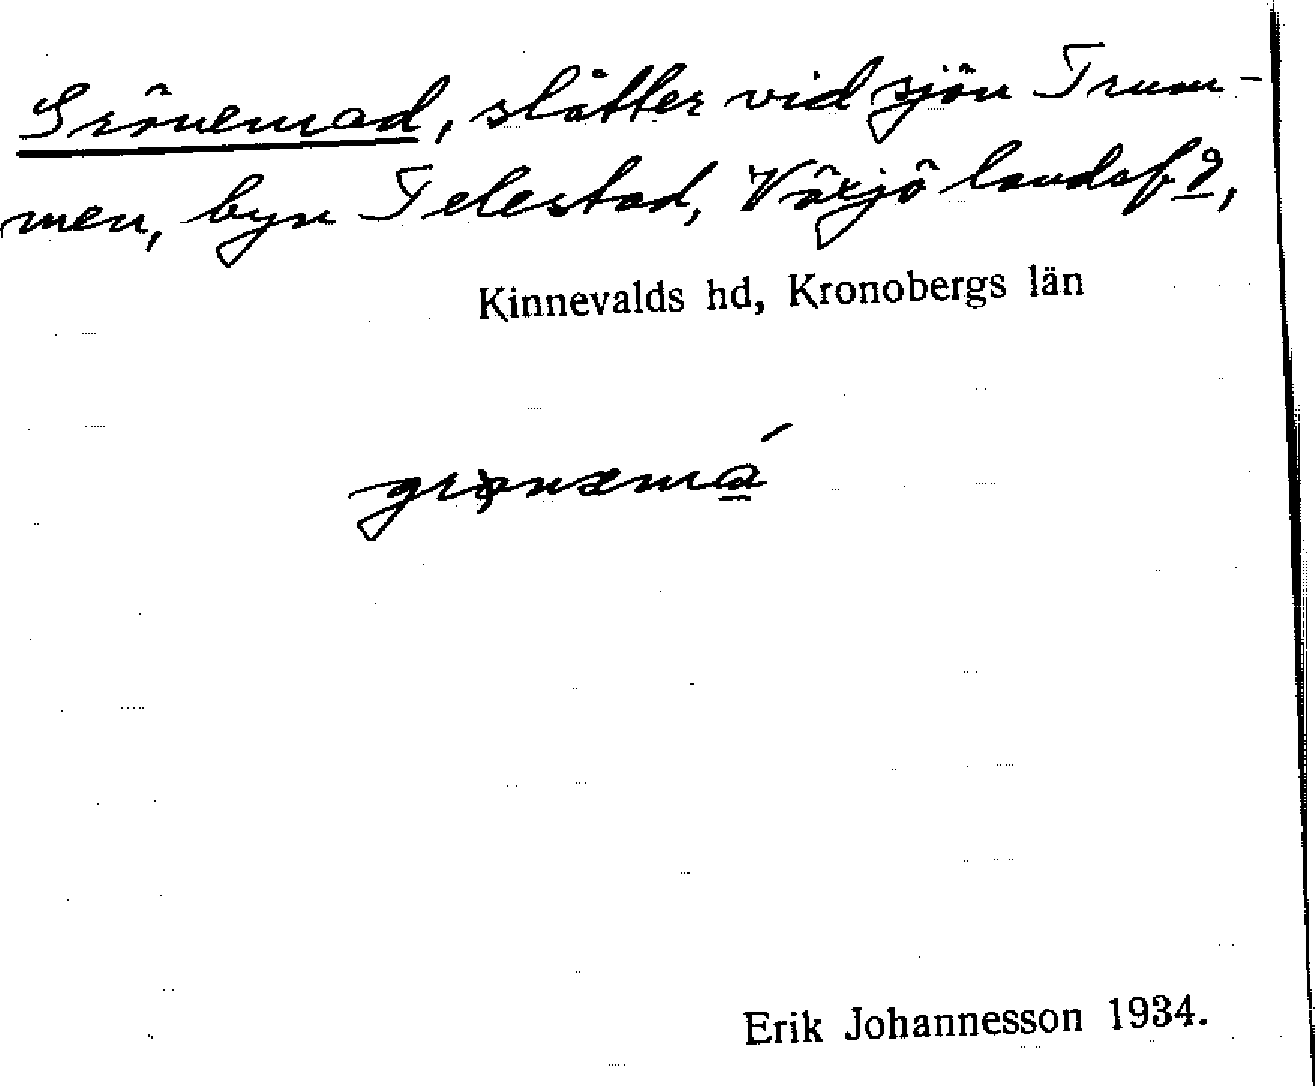 Grönemad, slåtter vid sjön Trum-
men, byn Telestad, Växjö landsf?,
Kinnevalds hd, Kronobergs län
Erik Johannesson 1934.